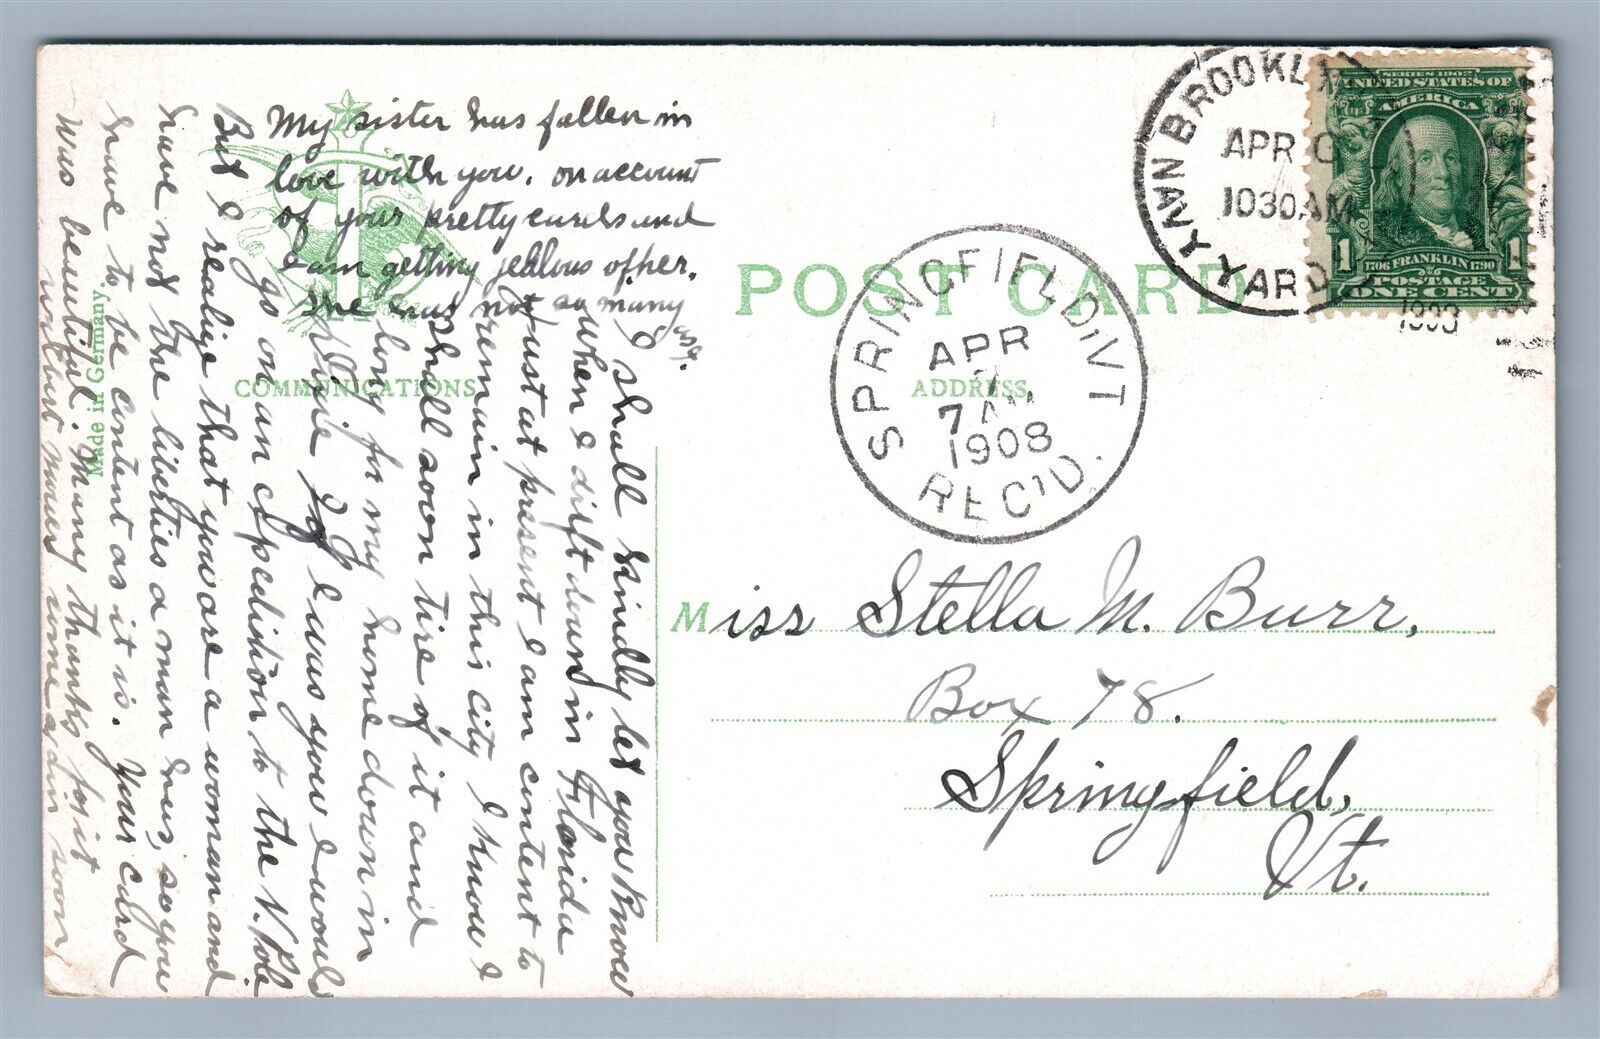 My sister has fallen in
love with you, on account
of your pretty cards and
I am getting jealous of her.
She has not so many as I.
I shall kindly let you know
when I drift down in Florida
Just at present I am content to
remain in this city I know I
shall soon tire of it and
long for my home down in
If I was you I would
go on an expedition to the N. Pole
But I realize that you are a woman and
have not the liberties a man has, so you
have to be content as it is. Your card
was beautiful. Many thanks for it
must more some again soon
Made in Germany.
COMMUNICATIONS
POST CARD
ADDRESS
SPRINGFIELD VT
APR
7
7 AM
1908
REC'D.
BROOKLYN
APR
1030AM
YARD
SERIES 1902
UNITED STATES OF
AMERICA
1 1
1706 FRANKLIN 1790
POSTAGE
ONE CENT
Miss Stella M. Burr,
Box 78.
Springfield,
Vt.